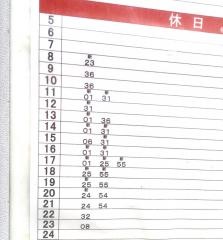 休日
5
6
7
8 23
9 36
10 36
11 01 31
12 31
13 01 36
14 01 31
15 06 31
16 01 31
17 01 25 55
18 25 55
19 25 55
20 24 54
21 24 54
22 32
23 08
24